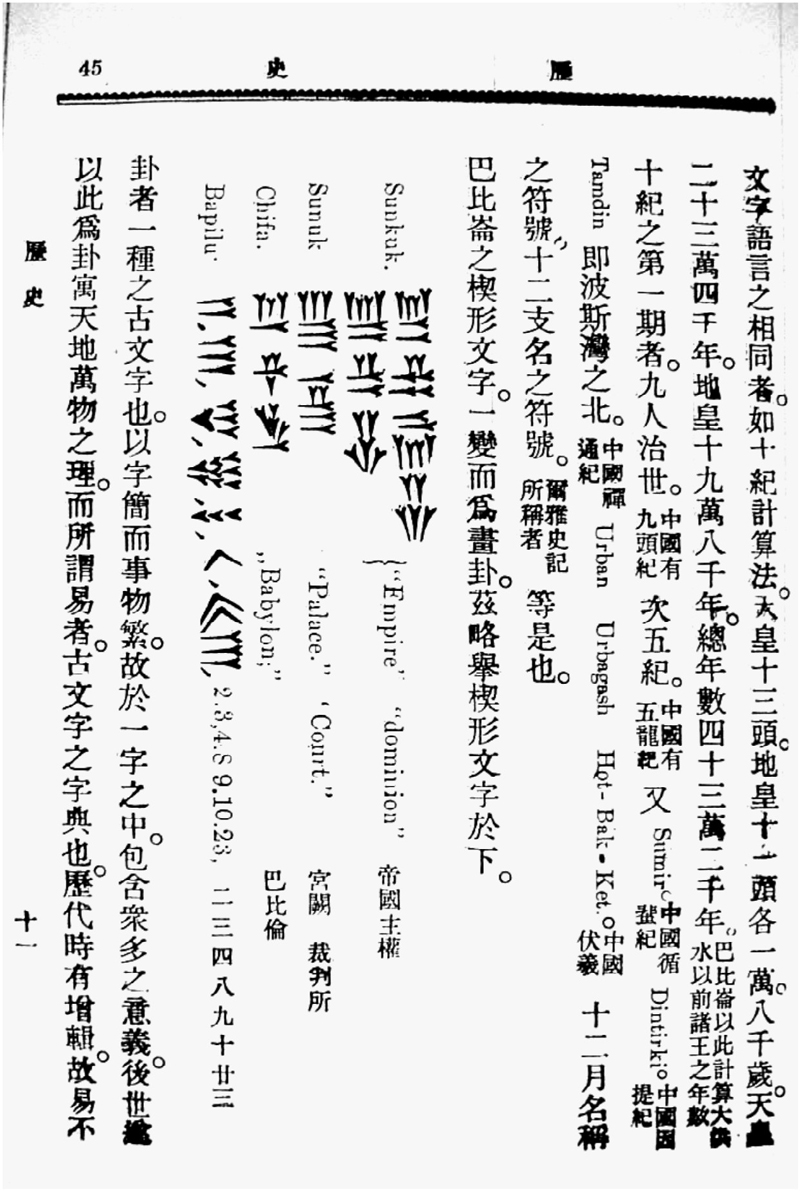 45 史 歷
文字語言之相同者。如十紀計算法。天皇十三頭。地皇十一頭各一萬。八千歲。天皇
二十三萬四千年。地皇十九萬八千年。總年數四十三萬二千年。巴比崙以此計算大洪水以前諸王之年數
十紀之第一期者。九人治世。中國有九頭紀 次五紀。中國有五龍紀 又 Sumir。中國循蜚紀 Dintirki。中國因提紀
Tamdin 即波斯灣之北。中國禪通紀 Urban Urbagash Hot-Bak-Ket。中國伏羲 十二月名稱
之符號。十二支名之符號。爾雅史記所稱者 等是也。
巴比崙之楔形文字。一變而爲畫卦。茲略舉楔形文字於下。
Sunkuk. "Empire" "dominion" 帝國主權
Sunuk "Palace." "Court." 宮闕 裁判所
Chifa. „Babylon;" 巴比倫
Bapilu 2.3,4.8 9.10.23, 二三四八九十廿三
卦者一種之古文字也。以字簡而事物繁。故於一字之中。包含衆多之意義。後世遂
以此爲卦寓天地萬物之理。而所謂易者。古文字之字典也。歷代時有增輯。故易不
歷史
十一